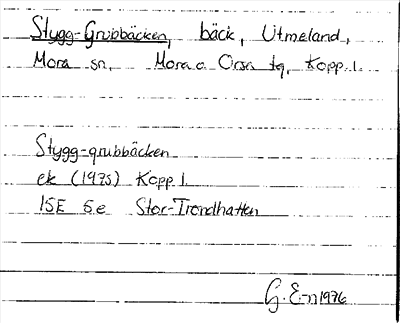 Stygg-Grubbäcken, bäck, Utmeland,
Mora sn, Mora o Orsa tg, Kopp. l.
Stygg-grubbäcken
ek (1975) Kopp l.
15E 5e Stor-Trondhatten
G. E-n 1976